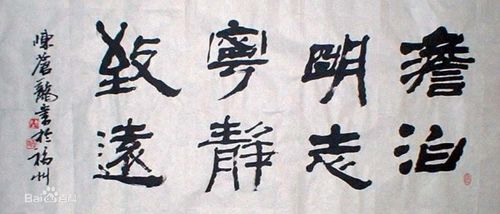 澹泊
明志
寧靜
致遠
陳蒼龍書於福州
Bai百科